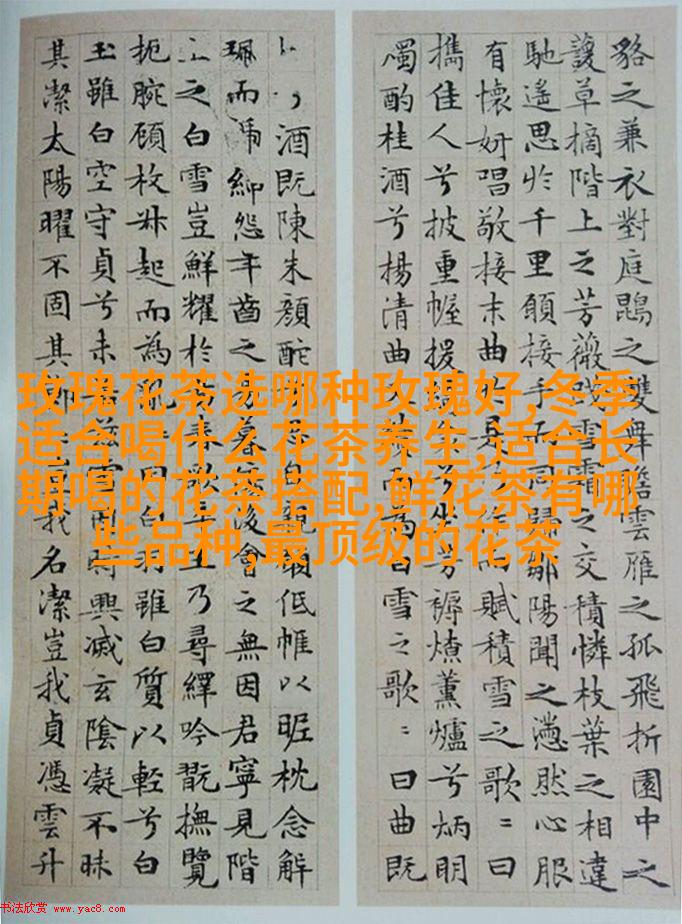 玫瑰花茶选哪种玫瑰好,冬季
适合喝什么花茶养生,适合长
期喝的花茶搭配,鲜花茶有哪
些品种,最顶级的花茶
貉之兼衣對庭鵾之雙舞瞻雲雁之孤飛折園中之
萲草摘階上之芳薇雪霜之交積憐枝葉之相違
馳遙思於千里願接手而同歸鄒陽聞之懣然心服
有懷妍唱敬接末曲而賦積雪之歌〻曰
攜佳人兮披重幄援兮坐芳褥燎薰爐兮炳明
燭酌桂酒兮揚清曲而為白雪之歌〻曰曲既
酒既陳朱顏酡思自親願低帷以昵枕念解
珮而褫紳怨年之暮後會之無因君寧見階
之白雪豈鮮耀於春歌卒王乃尋繹吟翫撫覽
扼腕顧枚叔起而為曰白羽雖白質以輕兮白
玉雖白空守貞兮未茲雪因時興滅玄陰凝不昧
其潔太陽曜不固其節我名潔豈我貞憑雲升
书法欣赏 www.yac8.com